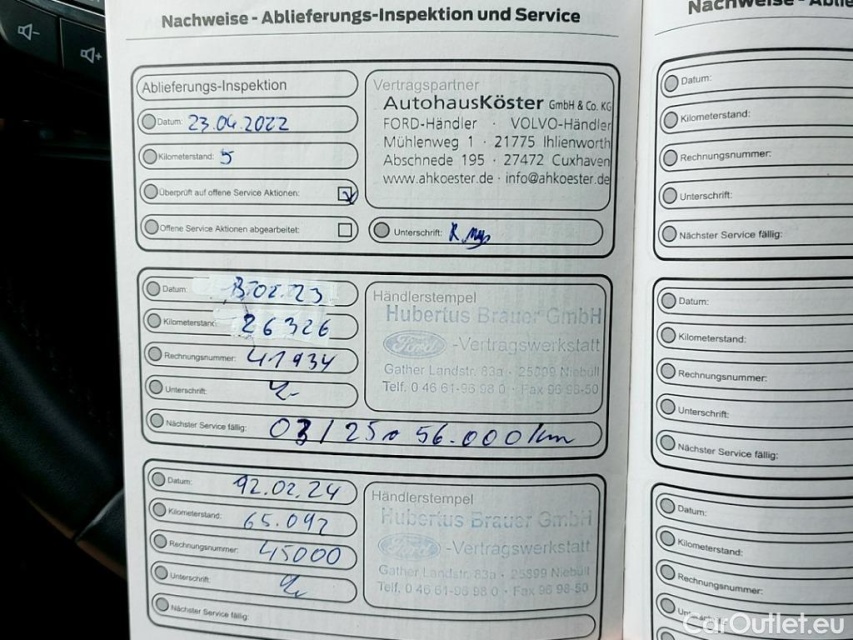 Nachweise - Ablieferungs-Inspektion und Service
Ablieferungs-Inspektion
Datum: 23.04.2022
Kilometerstand: 5
Überprüft auf offene Service Aktionen:
Offene Service Aktionen abgearbeitet:
Vertragspartner
AutohausKöster GmbH & Co. KG
FORD-Händler · VOLVO-Händler
Mühlenweg 1 · 21775 Ihlienworth
Abschnede 195 · 27472 Cuxhaven
www.ahkoester.de · info@ahkoester.de
Unterschrift:
Datum: 3.02.23
Kilometerstand: 26326
Rechnungsnummer: 41934
Unterschrift:
Nächster Service fällig: 03/25 o 56.000 km
Händlerstempel
Hubertus Brauer GmbH
Ford -Vertragswerkstatt
Gather Landstr. 83a · 25899 Niebüll
Telf. 0 46 61-96 98 0 · Fax 96 98-50
Datum: 12.02.24
Kilometerstand: 65.092
Rechnungsnummer: 45000
Unterschrift:
Nächster Service fällig:
Händlerstempel
Hubertus Brauer GmbH
Ford -Vertragswerkstatt
Gather Landstr. 83a · 25899 Niebüll
Telf. 0 46 61-96 98 0 · Fax 96 98-50
Nachweise - Ablie
Datum:
Kilometerstand:
Rechnungsnummer:
Unterschrift:
Nächster Service fällig:
Datum:
Kilometerstand:
Rechnungsnummer:
Unterschrift:
Nächster Service fällig:
Datum:
Kilometerstand:
Rechnungsnummer:
CarOutlet.eu